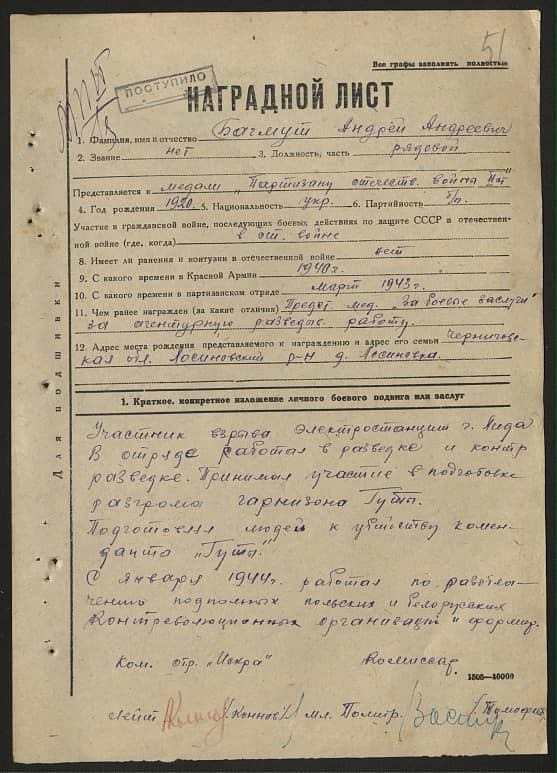 51
Все графы заполнять полностью
ПОСТУПИЛО
НАГРАДНОЙ ЛИСТ
1. Фамилия, имя и отчество Багмут Андрей Андреевич
2. Звание нет 3. Должность, часть рядовой
Представляется к медали „Партизану отечеств. война
4. Год рождения 1920 5. Национальность укр. 6. Партийность б/п.
Участие в гражданской войне, последующих боевых действиях по защите СССР в отечествен-
ной войне (где, когда) в от. войне
8. Имеет ли ранения и контузии в отечественной войне нет
9. С какого времени в Красной Армии 1940 г.
10. С какого времени в партизанском отряде март 1943 г.
11. Чем ранее награжден (за какие отличия) Предст. мед. „За боевые заслуги"
за агентурную разведыв. работу.
12. Адрес места рождения представляемого к награждению и адрес его семьи Черниговс-
кая обл. Лосиновский р-н д. Лосиновка.
Для подшивки
1. Краткое, конкретное изложение личного боевого подвига или заслуг
Участник взрыва электростанции г. Лида
В отряде работал в разведке и контр
разведке. Принимал участие в подготовке
разгрома гарнизона Гуты.
Подготовлял людей к убийству комен-
данта „Гуты."
С января 1944 г. работал по разобла-
чению подпольных польских и белорусских
Контрреволюционных организаций и формир.
Ком. отр. „Искра" Комиссар.
1505—10000
Лейт /Коннов/ мл. Политр.